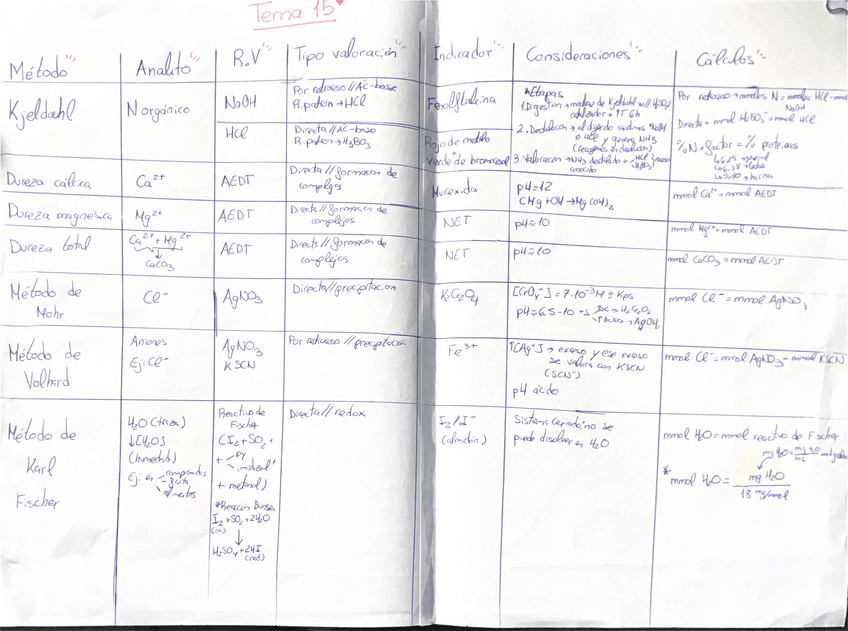 Tema 15
Método
Analito
R.V
Tipo valoración
Indicador
Consideraciones
Cálculos
Kjeldahl
N orgánico
NaOH
Por retroceso // Ac-base
R. patrón → HCl
HCl
Directa // Ac-base
R. patrón → H3BO3
Fenolftaleina
Rojo de metilo
verde de bromocresol
*Etapas
1. Digestión → matraz de Kjeldahl
catalizador + 1T 6h
2. Destilación → al digerido
3. Valoración → NH3 destilado +
conocido
Por retroceso → mmoles N = mmoles HCl - mmol
NaOH
Directa = mmol H2BO3- = mmol HCl
%N · factor = % proteínas
Dureza cálcica
Ca2+
AEDT
Directa // formación de
complejos
Murexida
pH = 12
CMg + OH → Mg(OH)2
mmol Ca2+ = mmol AEDT
Dureza magnésica
Mg2+
AEDT
Directa // formación de
complejos
NET
pH = 10
mmol Mg2+ = mmol AEDT
Dureza total
Ca2+ + Mg2+
CaCO3
AEDT
Directa // formación de
complejos
NET
pH = 10
mmol CaCO3 = mmol AEDT
Método de
Mohr
Cl-
AgNO3
Directa // precipitación
K2CrO4
[CrO4-] = 7·10-3 M = Kps
pH = 6.5 - 10
mmol Cl- = mmol AgNO3
Método de
Volhard
Aniones
Ej: Cl-
AgNO3
KSCN
Por retroceso // precipitación
Fe3+
↑[Ag+] → exceso y ese exceso
se valora con KSCN
(SCN-)
pH ácido
mmol Cl- = mmol AgNO3 - mmol KSCN
Método de
Karl
Fischer
H2O (trazas)
↓[H2O]
(humedad)
Ej: en comprimidos
alimentos
Reactivo de
Fischer
(I2 + SO2 +
+ py
imidazol +
+ metanol)
*Reacción Bunsen
I2 + SO2 + 2H2O
↓
H2SO4 + 2HI
(red)
Directa // redox
I2/I-
(almidón)
Sistema cerrado no se
puede disolver en H2O
mmol H2O = mmol reactivo de Fischer
* mmol H2O = mg H2O
18 mg/mmol